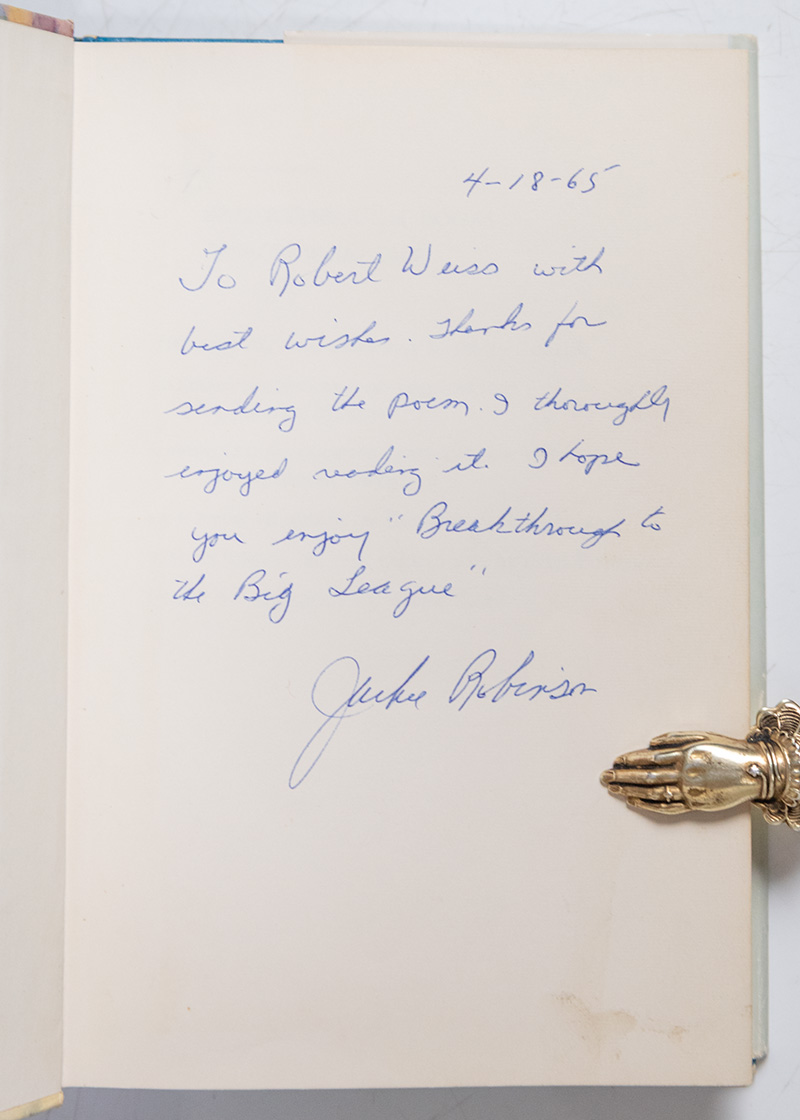 4-18-65
To Robert Weiss with
best wishes. Thanks for
sending the poem. I thoroughly
enjoyed reading it. I hope
you enjoy "Breakthrough to
the Big League"
Jackie Robinson